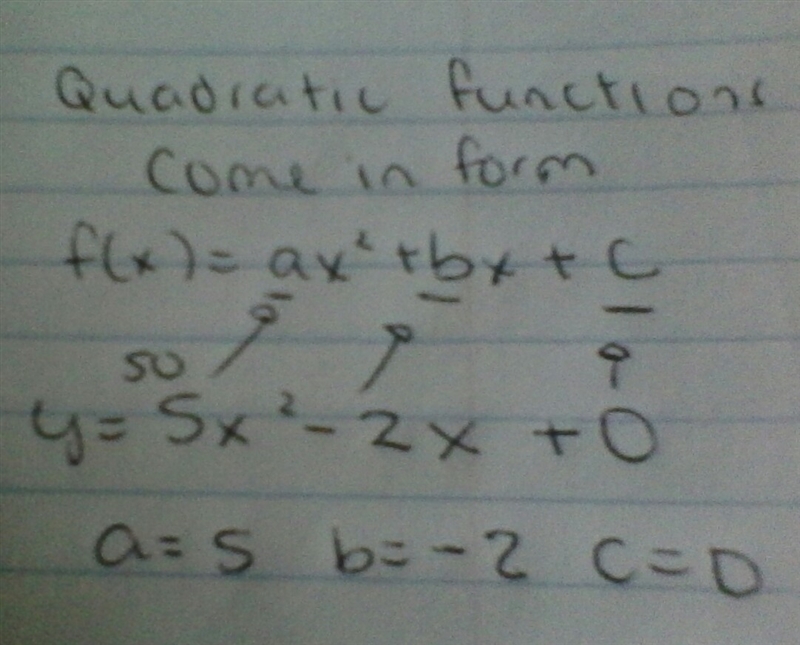 Quadratic functions
Come in form
f(x) = ax² + bx + c
so
y = 5x² - 2x + 0
a = 5 b = -2 c = 0